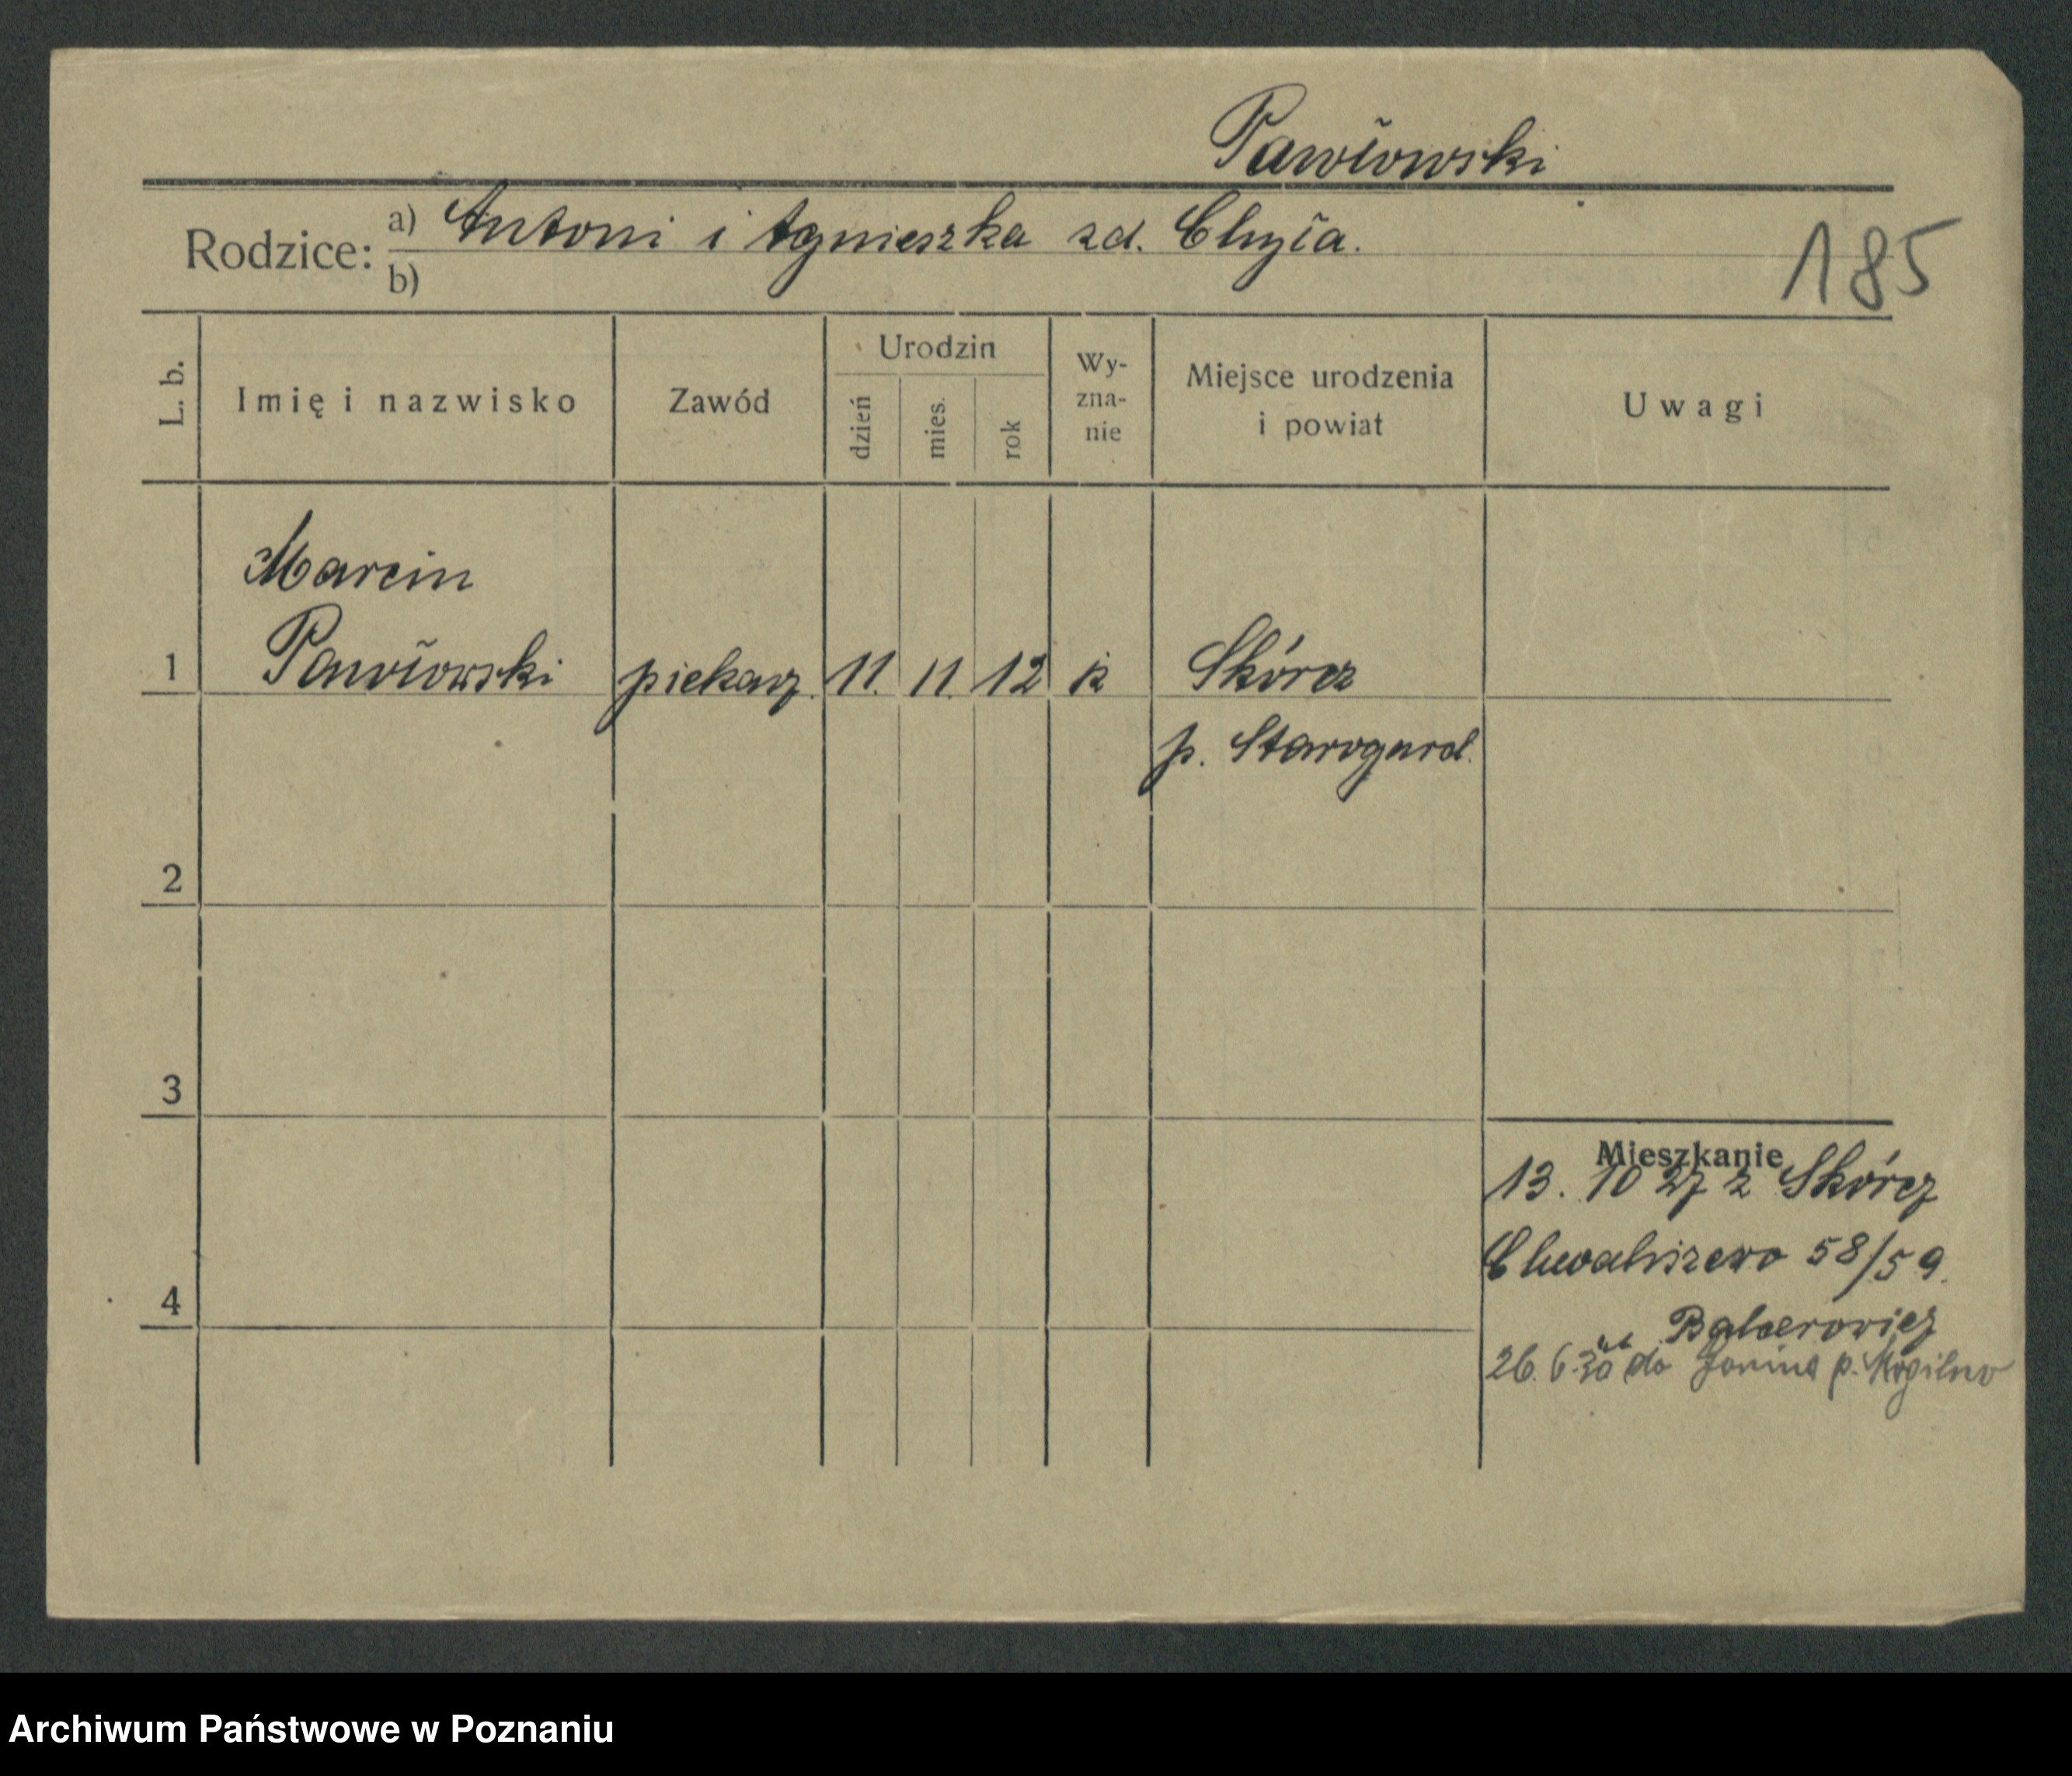 Pawłowski
Rodzice: a) Antoni i Agnieszka zd. Chyła.
b)
185
L. b.
Imię i nazwisko
Zawód
Urodzin
dzień
mies.
rok
Wy-
zna-
nie
Miejsce urodzenia
i powiat
Uwagi
Marcin
1 Pawłowski piekarz. 11. 11. 12 k Skórcz
p. Starogard.
2
3
4
Mieszkanie
13. 10 27 z Skórcz
Chwaliszewo 58/59.
Balcerowicz
26. 6 30 do p. Mogilno
Archiwum Państwowe w Poznaniu